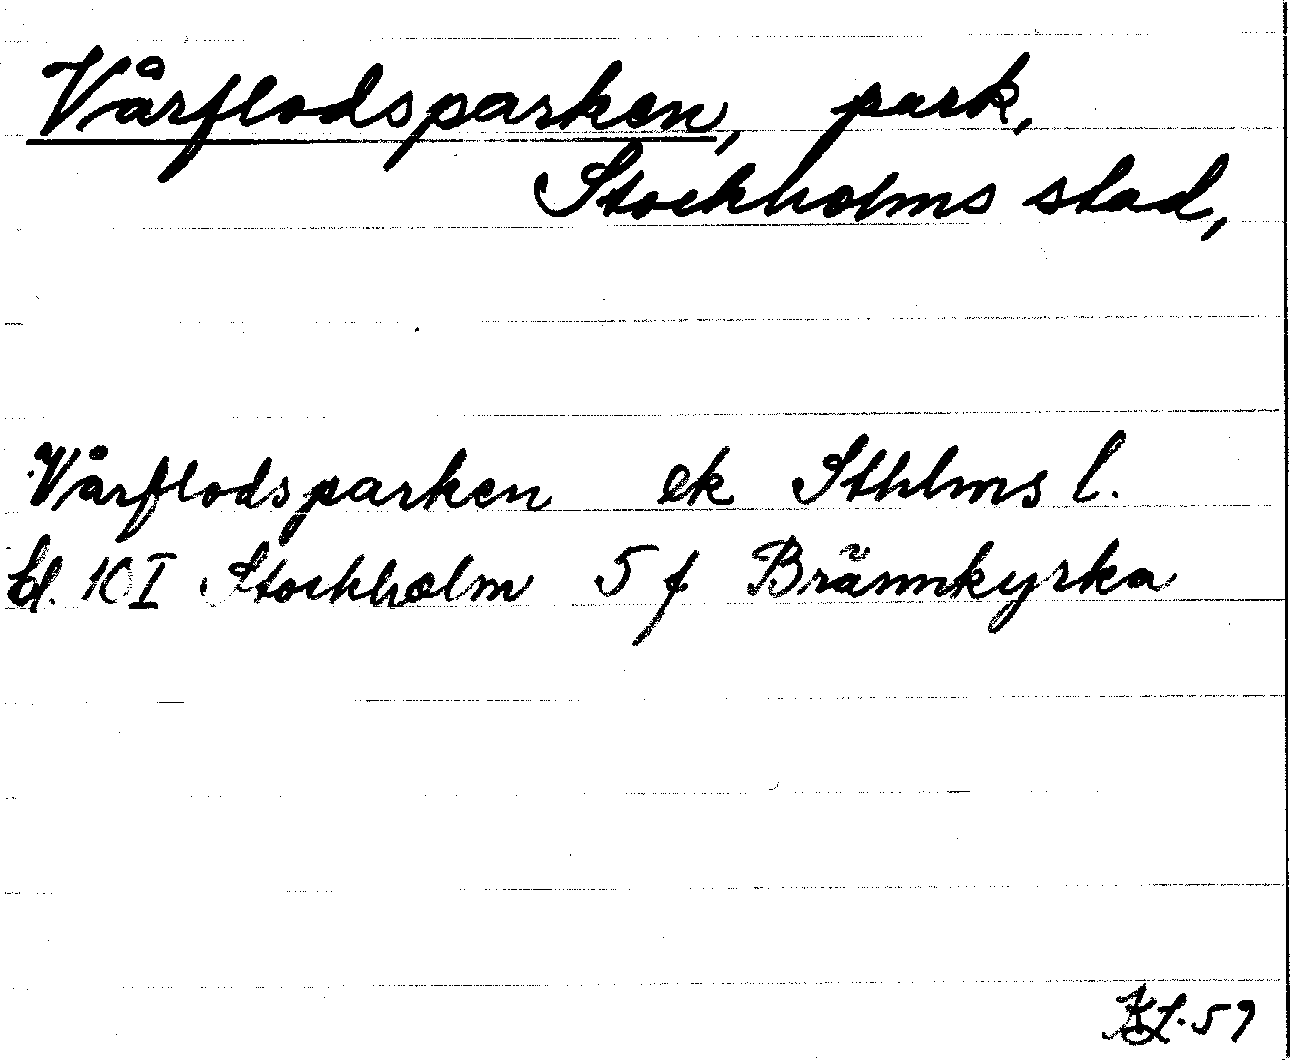 Vårflodsparken, park,
Stockholms stad,
Vårflodsparken ek Sthlms l.
bl. 10 I Stockholm 5 f Brännkyrka
59